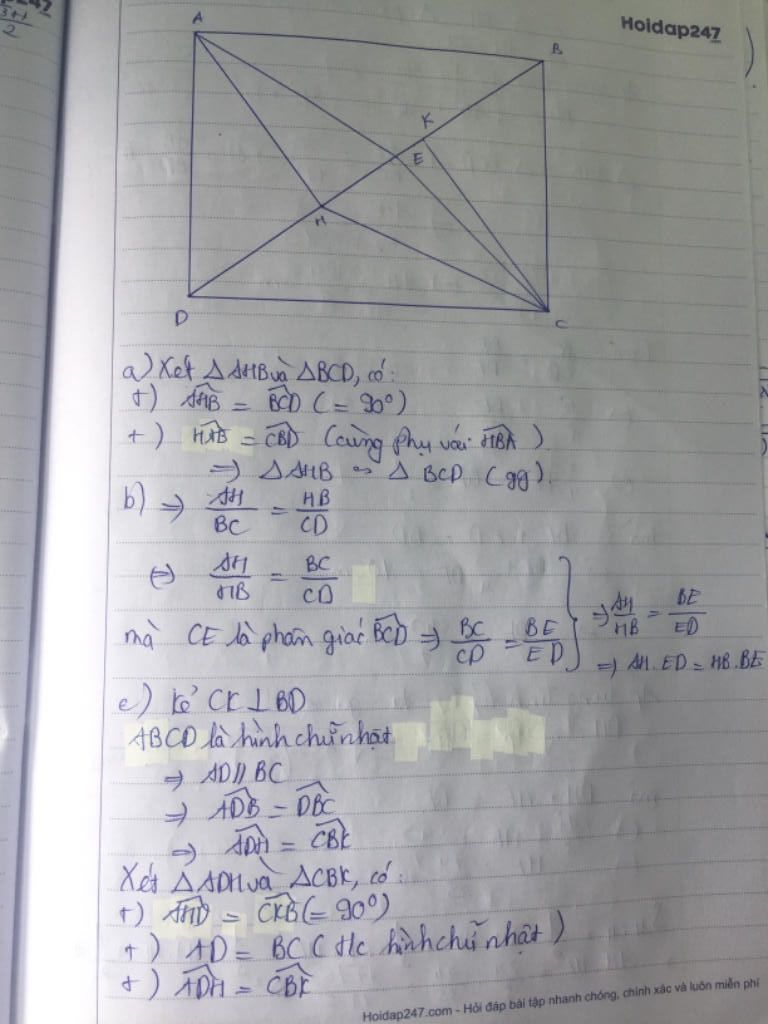 247
3+1
2
Hoidap247
A
B
K
E
H
D
C
a) Xét △AHB và △BCD, có:
+) AHB = BCD (= 90°)
+) HAB = CBD (cùng phụ với HBA)
⇒ △AHB ∽ △BCD (gg)
b) ⇒ AH/BC = HB/CD
⇔ AH/HB = BC/CD
mà CE là phân giác BCD ⇒ BC/CD = BE/ED } ⇒ AH/HB = BE/ED
⇒ AH.ED = HB.BE
c) Kẻ CK⊥BD
ABCD là hình chữ nhật
⇒ AD//BC
⇒ ADB = DBC
⇒ ADH = CBK
Xét △ADH và △CBK, có:
+) AHD = CKB (= 90°)
+) AD = BC (t/c hình chữ nhật)
+) ADH = CBK
Hoidap247.com - Hỏi đáp bài tập nhanh chóng, chính xác và luôn miễn phí